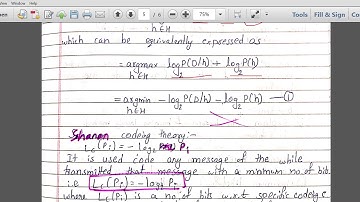 5 / 6
75%
Tools
Fill & Sign
C
which can be equivalently expressed as
= argmax log₂ P(D/h) + log₂ P(h)
h∈H
= argmin - log₂ P(D/h) - log₂ P(h) — ①
h∈H
Shanon codeing theory:-
Lc(Pi) = - log₂ Pi
It is used code any message of the while
transmitted that message with a minimum no. of bits
i.e Lc(Pi) = - log₂ Pi
where Lc(Pi) is a no. of bits w.r.t specific codeing